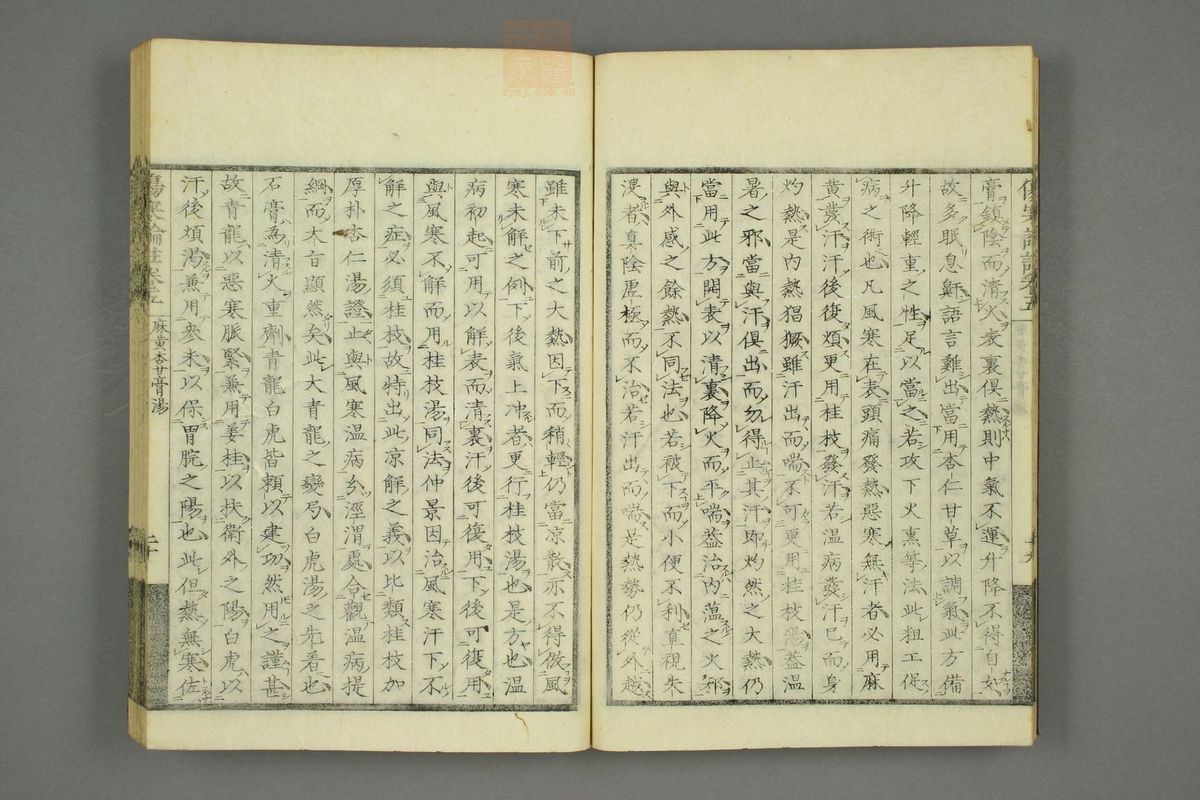 膏鎮陰而清火表裏俱熱則中氣不運升降不得自如
故多眠息鼾語言難出當用杏仁甘草以調氣此方備
升降輕重之性足以當之若攻下火熏等法此粗工促
病之術也凡風寒在表頭痛發熱惡寒無汗者必用麻
黃發汗汗後復煩更用桂枝發汗若溫病發汗已而身
灼熱是內熱猖獗雖汗出而喘不可更用桂枝湯蓋溫
暑之邪當與汗俱出而勿得止其汗即灼然之大熱仍
當用此方開表以清裏降火而平喘蓋治內蘊之火邪
與外感之餘熱不同法也若被下而小便不利直視失
溲者真陰虛極而不治若汗出而喘是熱勢仍從外越
雖未下前之大熱因下而稍輕仍當凉散亦不得倣風
寒未解之例下後氣上冲者更行桂枝湯也是方也溫
病初起可用以解表而清裏汗後可復用下後可復用
與風寒不解而用桂枝湯同法仲景因治風寒汗下不
解之症必須桂枝故特出此凉解之義以比類桂枝加
厚朴杏仁湯證止與風寒溫病分涇渭處合觀溫病提
綱而大旨顯然矣此大青龍之變方白虎湯之先着也
石膏為清火重劑青龍白虎皆賴以建功然用之謹甚
故青龍以惡寒脈緊兼用姜桂以扶衛外之陽白虎以
汗後煩渴兼用參朱以保胃脘之陽也此但熱無寒佐
傷寒論註卷五
麻黃杏甘膏湯
二十
zysj.com.cn